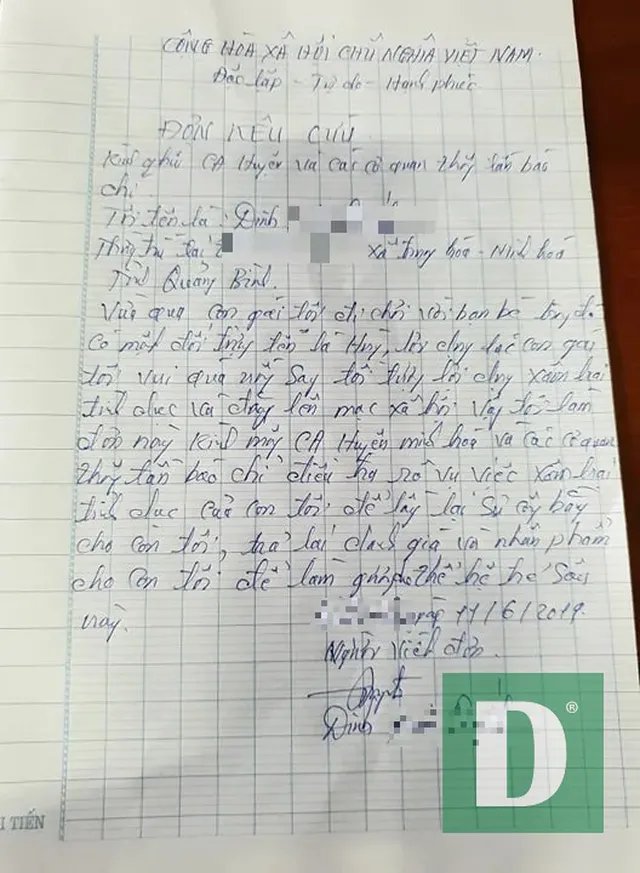 CỘNG HOÀ XÃ HỘI CHỦ NGHĨA VIỆT NAM.
Độc lập - Tự do - Hạnh phúc.
ĐƠN KÊU CỨU
Kính gửi CA Huyện và các cơ quan thông tấn báo
chí
Tôi tên là: Đinh
Thường trú tại: xã Trung hoá - Minh hoá
Tỉnh Quảng Bình.
Vừa qua con gái tôi đi chơi với bạn bè trong đó
có một đối tượng tên là Huy, lợi dụng lúc con gái
tôi vui quá uống say đối tượng lợi dụng xâm hại
tình dục và đăng lên mạng xã hội vậy tôi làm
đơn này kính mong CA Huyện minh hoá và các cơ quan
thông tấn báo chí điều tra rõ vụ việc xâm hại
tình dục của con tôi để lấy lại sự công bằng
cho con tôi, trả lại danh giá và nhân phẩm
cho con tôi để làm gương cho thế hệ trẻ sau
này.
11/6/2019.
Người viết đơn.
Đinh
D®
I TIẾN